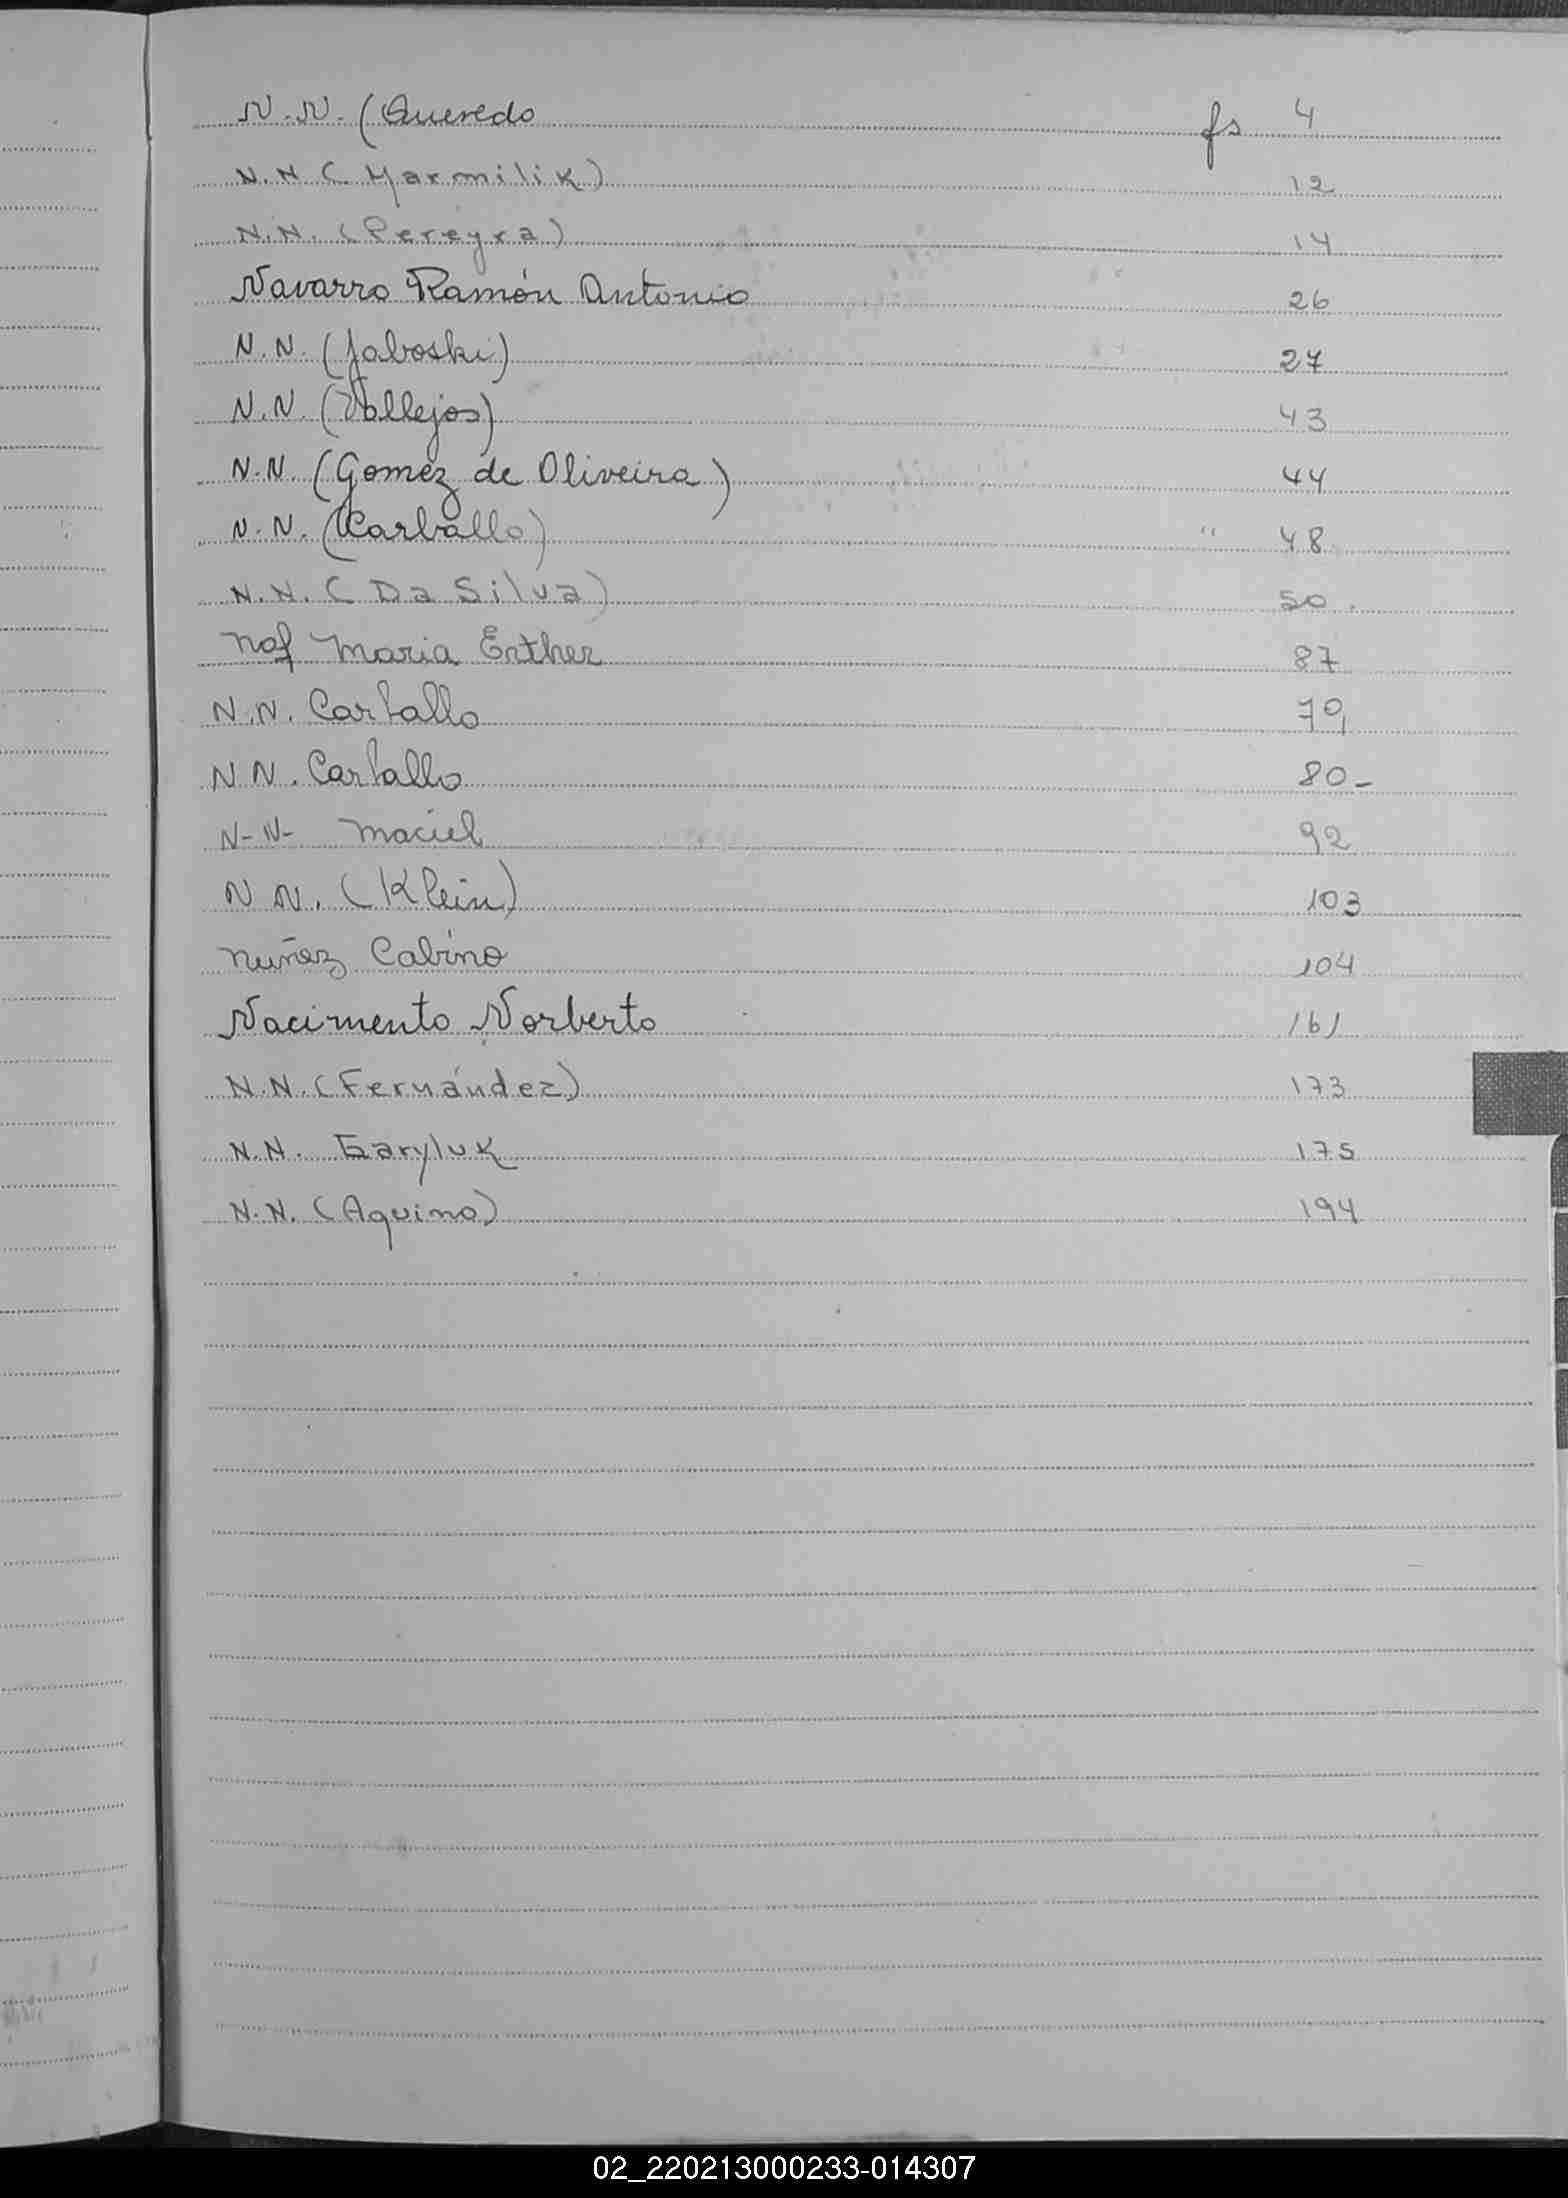 N.N. (Quevedo fs 4
N.N (Yarmilik) 12
N.N. (Pereyra) 14
Navarro Ramón Antonio 26
N.N. (Jaboski) 27
N.N. (Vallejos) 43
N.N. (Gomez de Oliveira) 44
N.N. (Carballo) " 48
N.N. (Da Silva) 50.
Naf Maria Esther 87
N.N. Carballo 70
N N. Carballo 80-
N-N- Maciel 92
N N. (Klein) 103
Nuñez Cabino 104
Nacimento Norberto 161
N.N. (Fernández) 173
N.N. Garyluk 175
N.N. (Aquino) 194
02_220213000233-014307